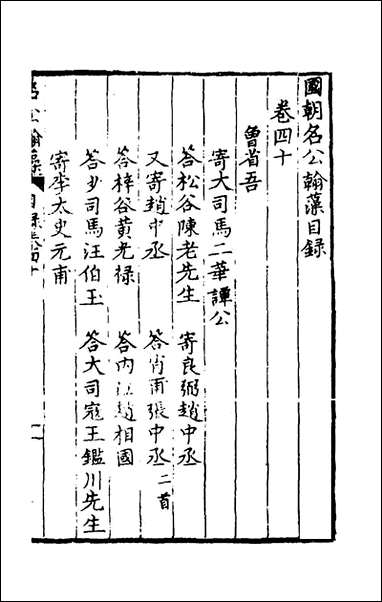 國朝名公翰藻目録
卷四十
曾省吾
寄大司馬二華譚公
荅松谷陳老先生　寄良弼趙中丞
又寄趙中丞　荅肖甫張中丞二首
荅梓谷黄光禄　荅内江趙相國
荅少司馬汪伯玉　荅大司寇王鑑川先生
寄李太史元甫
名公翰藻　目録卷四十　一